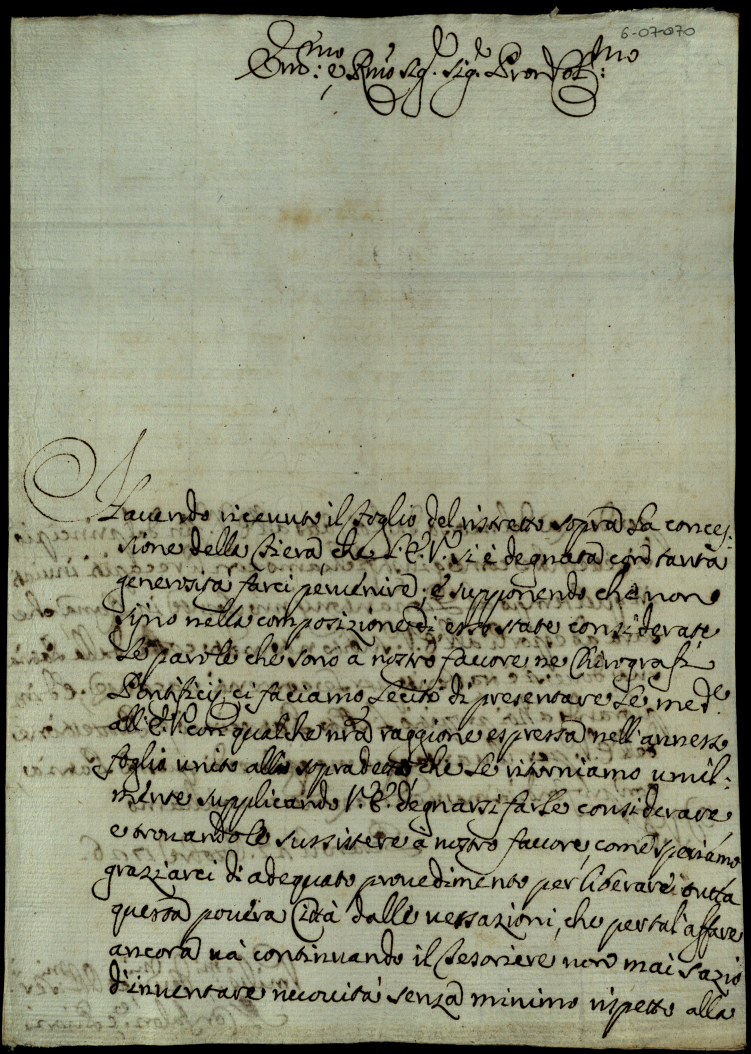 6-07-070
Em̃o: e Rm̃o Sig.r Sig.r Pron Col.mo:
Hauendo riceuuto il foglio del ristretto sopra la conces:
sione della Fiera, che l'E. V. si è degnata con tanta
generosità farci peruenire, e supponendo che non
sijno nella composizione di esso state considerate
le parole che sono à nostro fauore ne Chirografi
Pontificij ci facciamo lecito di presentare le med.e
all'E. V. con qualche nr̃a raggione espressa nell'annesso
foglio unito allo sopradetto che le ritorniamo umil:
mente supplicando V. E. degnarsi farle considerare
e trouandole sussistere à nostro fauore, come speriamo
graziarci di adequato prouedimento per liberare tutta
questa pouera Città dalle uessazioni, che per tal'affare
ancora uà continuando il Tesoriere non mai sazio
d'inuentare nouità senza minimo rispetto alla